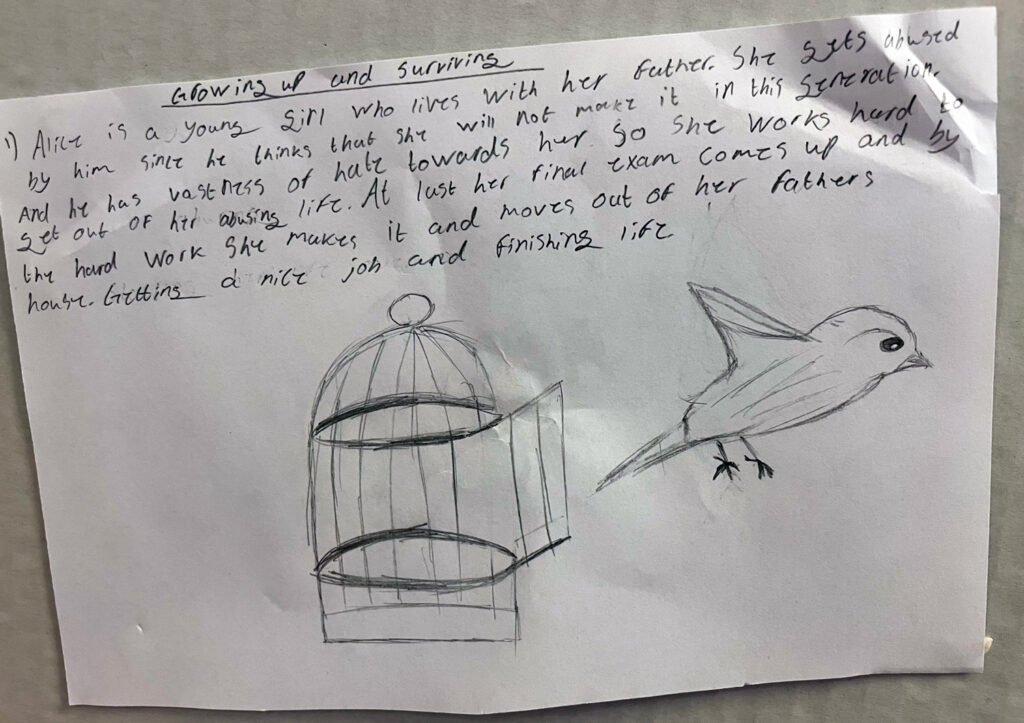 Growing up and surviving
1) Alice is a young girl who lives with her father. She gets abused
by him since he thinks that she will not make it in this generation.
And he has vastness of hate towards her. So she works hard to
get out of her abusing life. At last her final exam comes up and by
the hard work she makes it and moves out of her fathers
house. Getting a nice job and finishing life